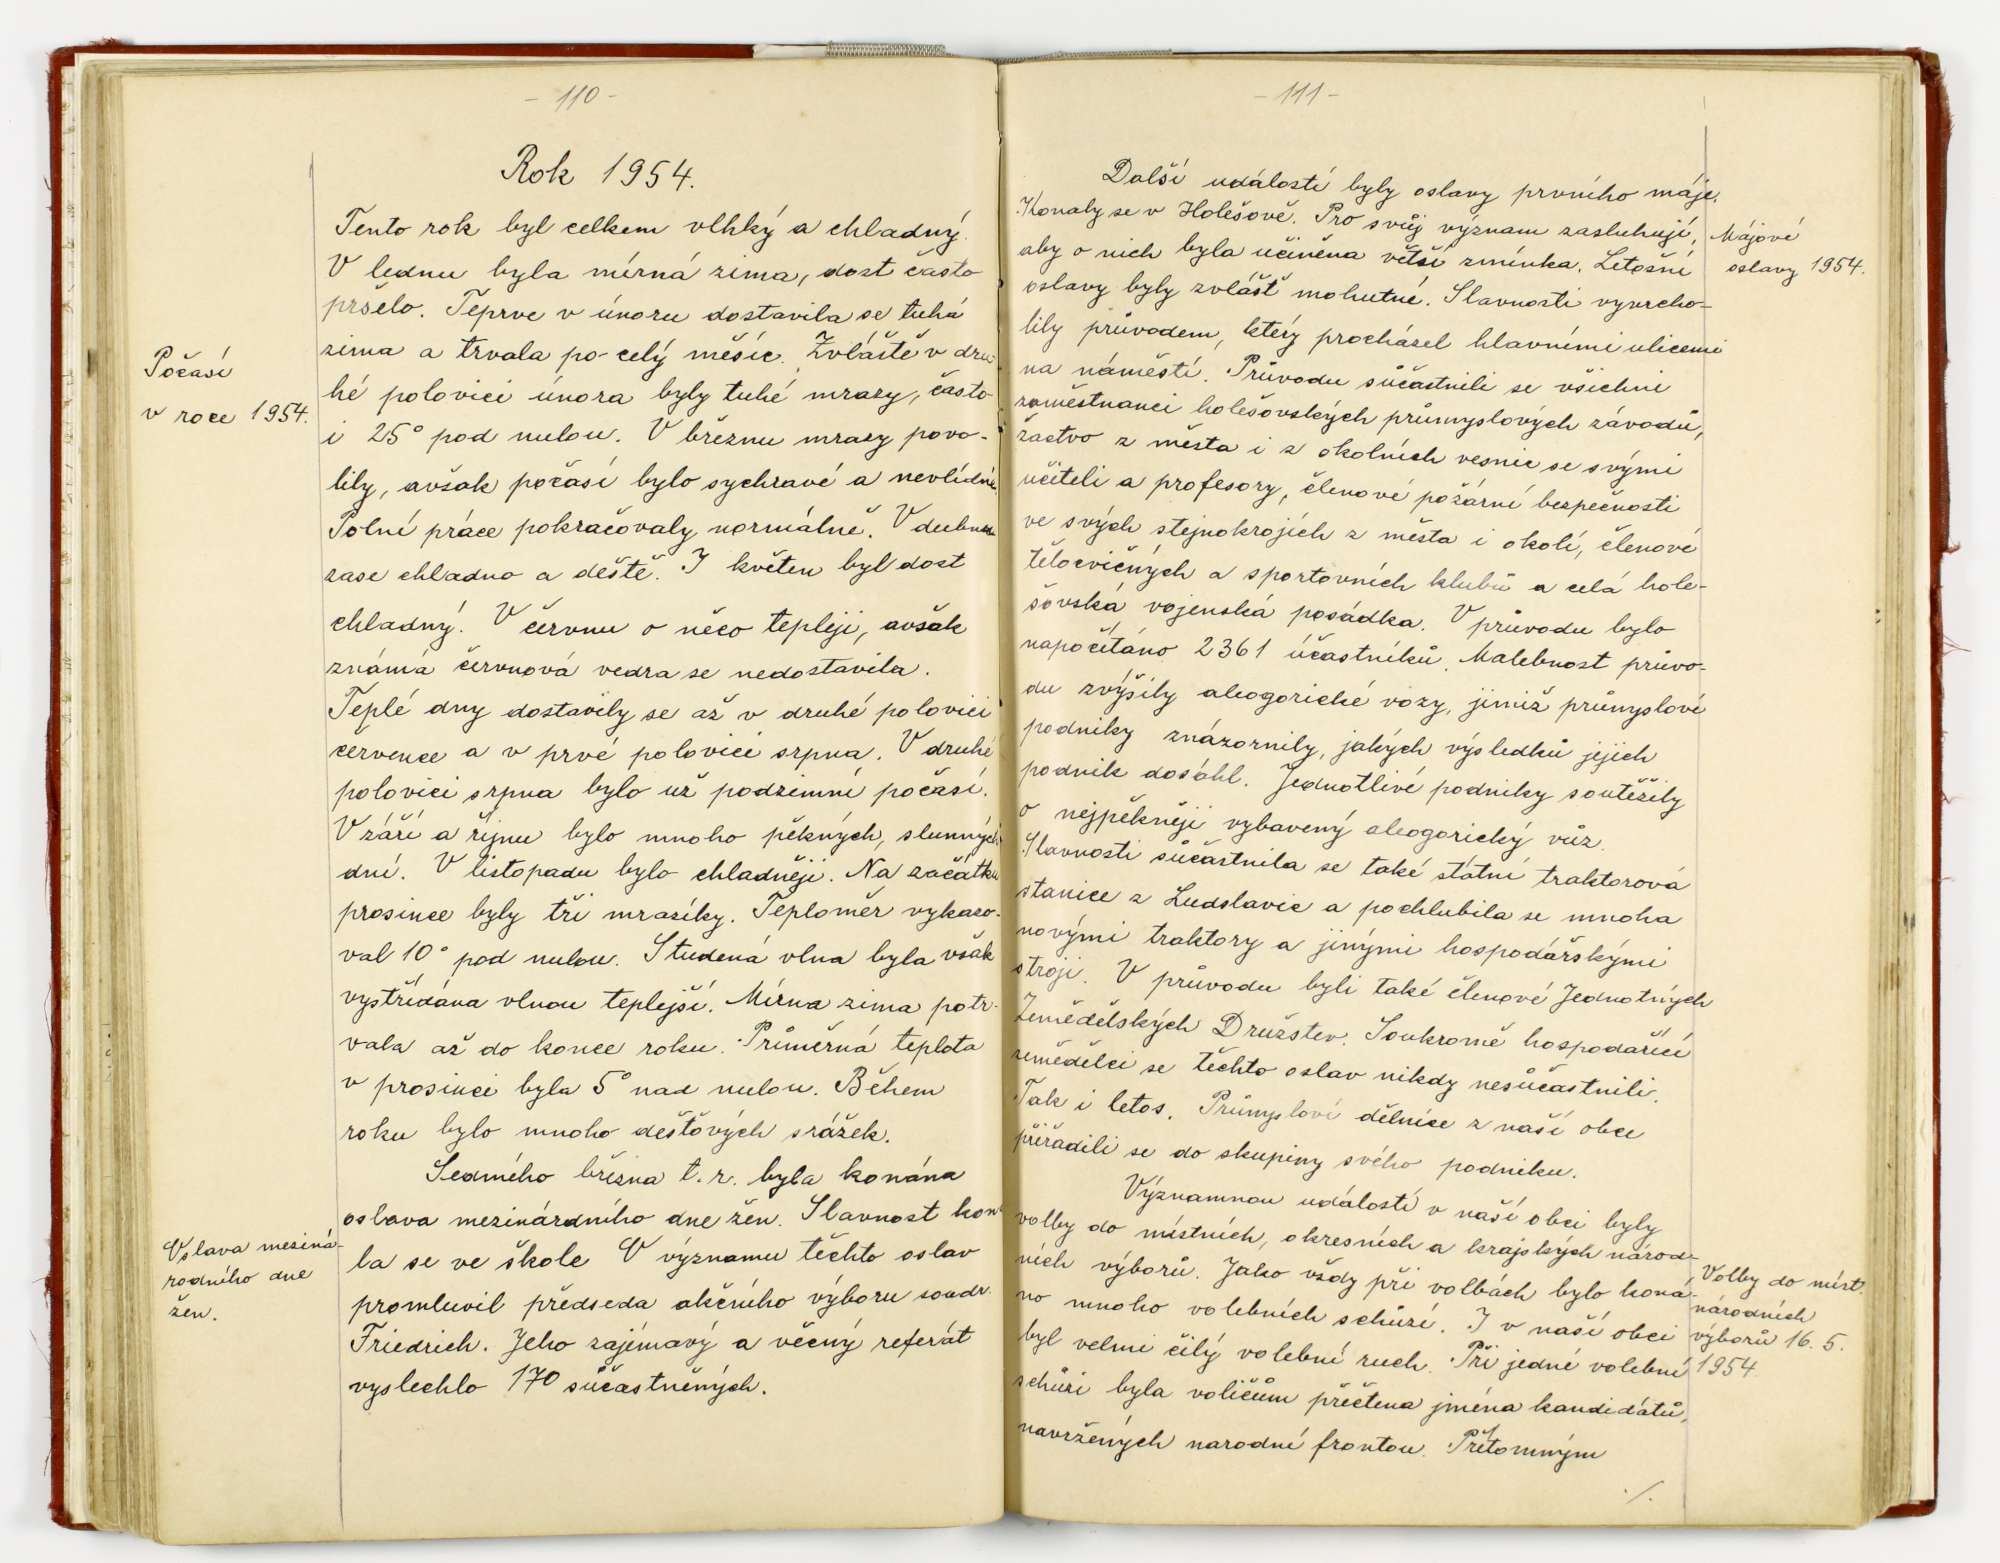 - 110 -
Rok 1954.
Tento rok byl celkem vlhký a chladný.
V lednu byla mírná zima, dost často
pršelo. Teprve v únoru dostavila se tuhá
zima a trvala po celý měsíc. Zvláště v dru-
hé polovici února byly tuhé mrazy, často
i 25° pod nulou. V březnu mrazy povo-
lily, avšak počasí bylo sychravé a nevlídné.
Polní práce pokračovaly normálně. V dubnu
zase chladno a deště. I květen byl dost
chladný. V červnu o něco tepleji, avšak
známá červnová vedra se nedostavila.
Teplé dny dostavily se až v druhé polovici
července a v prvé polovici srpna. V druhé
polovici srpna bylo už podzimní počasí.
V září a říjnu bylo mnoho pěkných, slunných
dní. V listopadu bylo chladněji. Na začátku
prosince byly tři mrazíky. Teploměr vykazo-
val 10° pod nulou. Studená vlna byla však
vystřídána vlnou teplejší. Mírna zima potr-
vala až do konce roku. Průměrná teplota
v prosinci byla 5° nad nulou. Během
roku bylo mnoho dešťových srážek.
Sedmého března t. r. byla konána
oslava mezinárdního dne žen. Slavnost kona
la se ve škole O významu těchto oslav
promluvil předseda akčního výboru soudr.
Friedrich. Jeho zajímavý a věcný referát
vyslechlo 170 súčastněných.
Počasí
v roce 1954.
Oslava meziná-
rodního dne
žen.
- 111 -
Další událostí byly oslavy prvního máje.
Konaly se v Holešově. Pro svůj význam zasluhují,
aby o nich byla učiněna větší zmínka. Letošní
oslavy byly zvlášť mohutné. Slavnosti vyvrcho-
lily průvodem, který procházel hlavními ulicemi
na náměstí. Průvodu súčastnili se všichni
zaměstnanci holešovských průmyslových závodů,
žactvo z města i z okolních vesnic se svými
učiteli a profesory, členové požární bezpečnosti
ve svých stejnokrojích z města i okolí, členové
tělocvičných a sportovních klubů a celá hole-
šovská vojenská posádka. V průvodu bylo
napočítáno 2361 účastníků. Malebnost průvo-
du zvýšily alegorické vozy, jimiž průmyslové
podniky znázornily, jakých výsledků jejich
podnik dosáhl. Jednotlivé podniky soutěžily
o nejpěkněji vybavený alegorický vůz.
Slavnosti súčastnila se také státní traktorová
stanice z Ludslavic a pochlubila se mnoha
novými traktory a jinými hospodářskými
stroji. V průvodu byli také členové Jednotných
Zemědělských Družstev. Soukromě hospodařící
zemědělci se těchto oslav nikdy nesúčastnili.
Tak i letos. Průmysloví dělníce z naší obce
přiřadili se do skupiny svého podniku.
Významnou událostí v naší obci byly
volby do místních, okresních a krajských národ-
ních výborů. Jako vždy při volbách bylo koná-
no mnoho volebních schůzí. I v naší obci
byl velmi čilý volební ruch. Při jedné volební
schůzi byla voličům přečtena jména kandidátů,
navržených narodní frontou. Přítomným
./.
Májové
oslavy 1954.
Volby do míst.
národních
výborů 16. 5.
1954.